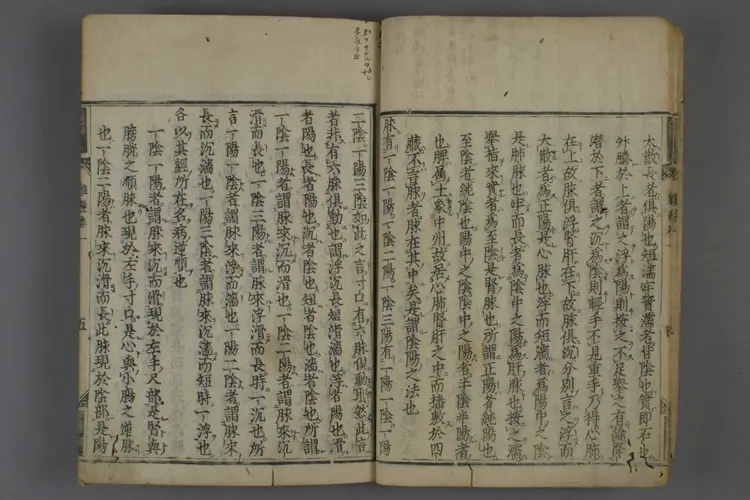 大散長者俱陽也短濇牢實濡者皆陰也實即石也
外勝於上者謂之浮爲陽則按之不足舉之有餘
潛於下者謂之沉爲陰則輕手不見重手乃得心肺
在上故脉俱浮腎肝在下故脉俱沉分別言之浮而
大散者爲正陽是心脉也浮而短濇者爲陽中之陰
是肺脉也牢而長者爲陰中之陽爲肝脉也按之濡
舉指來實者爲至陰是腎脉也所謂正陽者純陽也
至陰者純陰也陽中之陰陰中之陽者半陰半陽者
也脾屬土象中州故居心肺腎肝之中而播敷於四
臓不言脉者脉在其中矣是謂陰陽之法也
脉有一陰一陽一陰二陽一陰三陽有一陽一陰一陽
二陰一陽三陰如此之言寸口有六脉俱動耶然此言
者非有六脉俱動也謂浮沉長短滑濇也浮者陽也滑
者陽也長者陽也沉者陰也短者陰也濇者陰也所謂
一陰一陽者謂脉來沉而滑也一陰二陽者謂脉來沉
滑而長也一陰三陽者謂脉來浮滑而長時一沉也所
言一陽一陰者謂脉來浮而濇也一陽二陰者謂脉來
長而沉濇也一陽三陰者謂脉來沉濇而短時一浮也
各以其經所在名病逆順也
一陰一陽者謂脉來沉而滑現於左手尺部是腎與
膀胱之順脉也現於左手寸口是心與小腸之逆脉
也一陰二陽者脉來沉滑而長此脉現於陰部是陽
五